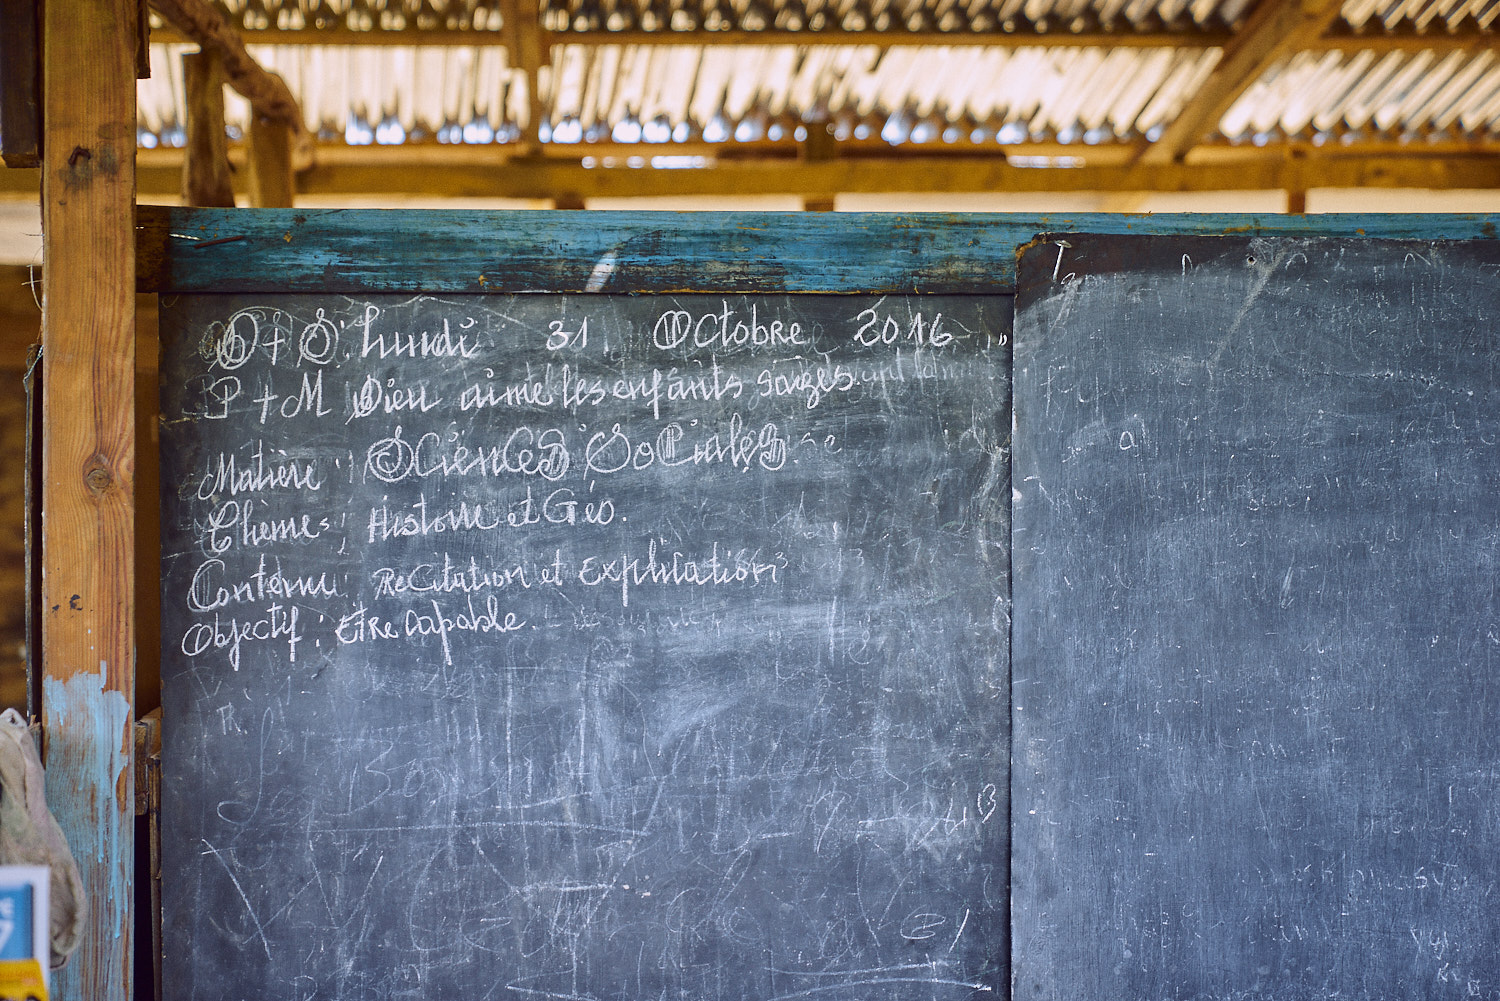 D + S : Lundi 31 Octobre 2016
P + M Dieu aime les enfants sages.
Matière : Sciences Sociales
Thème : Histoire et Géo.
Contenu : Récitation et Explication
Objectif : Etre capable